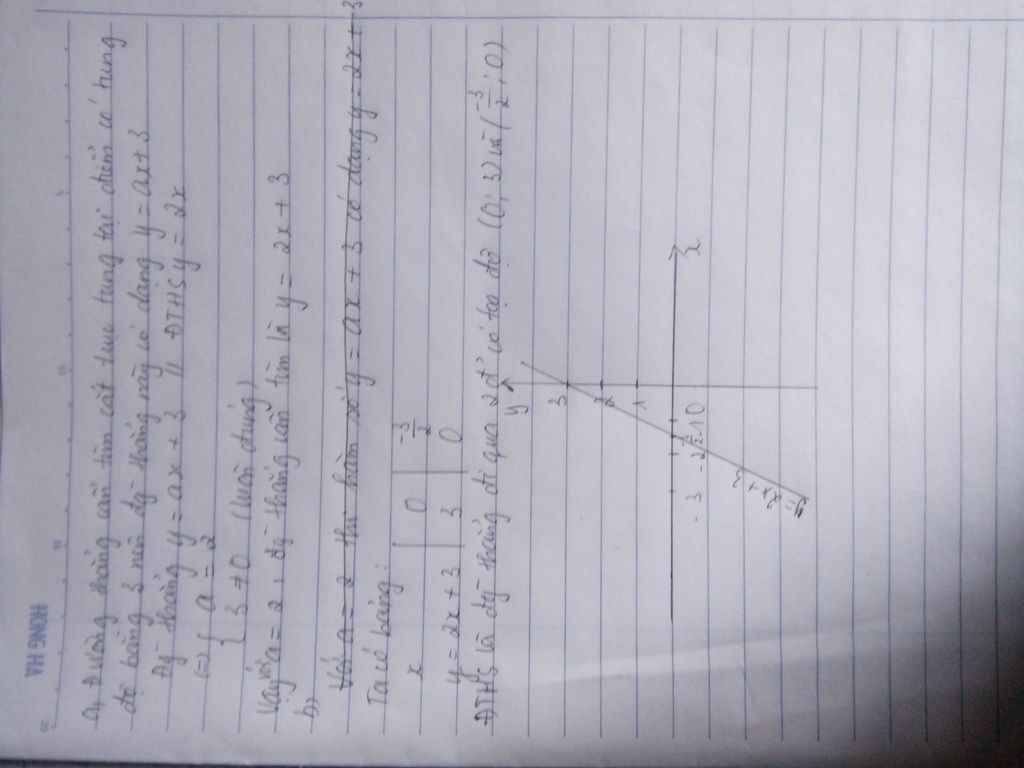 HONG HA
a, Đường thẳng cần tìm cắt trục tung tại điểm có tung
độ bằng 3 nên đg thẳng này có dạng y = ax + 3
Đg thẳng y = ax + 3 // ĐTHS y = 2x
(=) { a = 2
3 ≠ 0 (luôn đúng)
Vậy với a = 2, đg thẳng cần tìm là y = 2x + 3
b)
Với a = 2 thì hàm số y = ax + 3 có dạng y = 2x + 3
Ta có bảng:
x 0 -3/2
y = 2x + 3 3 0
ĐTHS là đg thẳng đi qua 2 đ' có tọa độ (0; 3) và (-3/2; 0)
y
3
2
1
-3 -2 -3/2 -1 0 x
y = 2x + 3